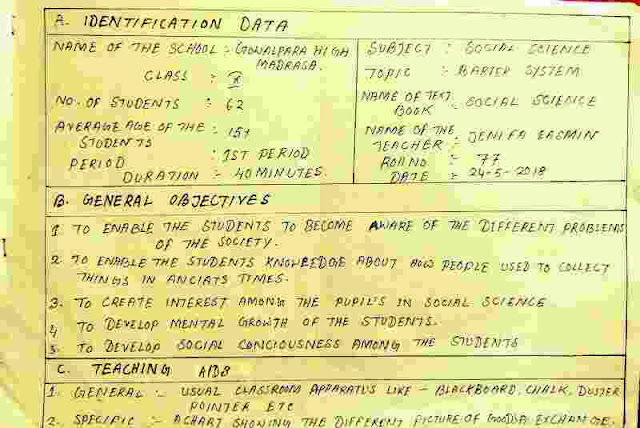 A. IDENTIFICATION DATA
NAME OF THE SCHOOL :- GOWALPARA HIGH
MADRASA.
CLASS : X
NO. OF STUDENTS : 62
AVERAGE AGE OF THE : 15+
STUDENTS
PERIOD : 1ST PERIOD
DURATION :- 40 MINUTES.
SUBJECT :- SOCIAL SCIENCE
TOPIC :- BARTER SYSTEM
NAME OF TEXT
BOOK :- SOCIAL SCIENCE
NAME OF THE
TEACHER :- JENIFA EASMIN
ROLL NO. :- 77
DATE :- 24-5-2018
B. GENERAL OBJECTIVES
1. TO ENABLE THE STUDENTS TO BECOME AWARE OF THE DIFFERENT PROBLEMS
OF THE SOCIETY.
2. TO ENABLE THE STUDENTS KNOWLEDGE ABOUT HOW PEOPLE USED TO COLLECT
THINGS IN ANCIATS TIMES.
3. TO CREATE INTEREST AMONG THE PUPIL'S IN SOCIAL SCIENCE
4 TO DEVELOP MENTAL GROWTH OF THE STUDENTS.
5. TO DEVELOP SOCIAL CONCIOUSNESS AMONG THE STUDENTS
C. TEACHING AIDS
1. GENERAL :- USUAL CLASSROOM APPARATUS LIKE - BLACKBOARD, CHALK, DUSTER
POINTER ETC
2. SPECIFIC :- A CHART SHOWING THE DIFFERENT PICTURE OF GOODS EXCHANGE.